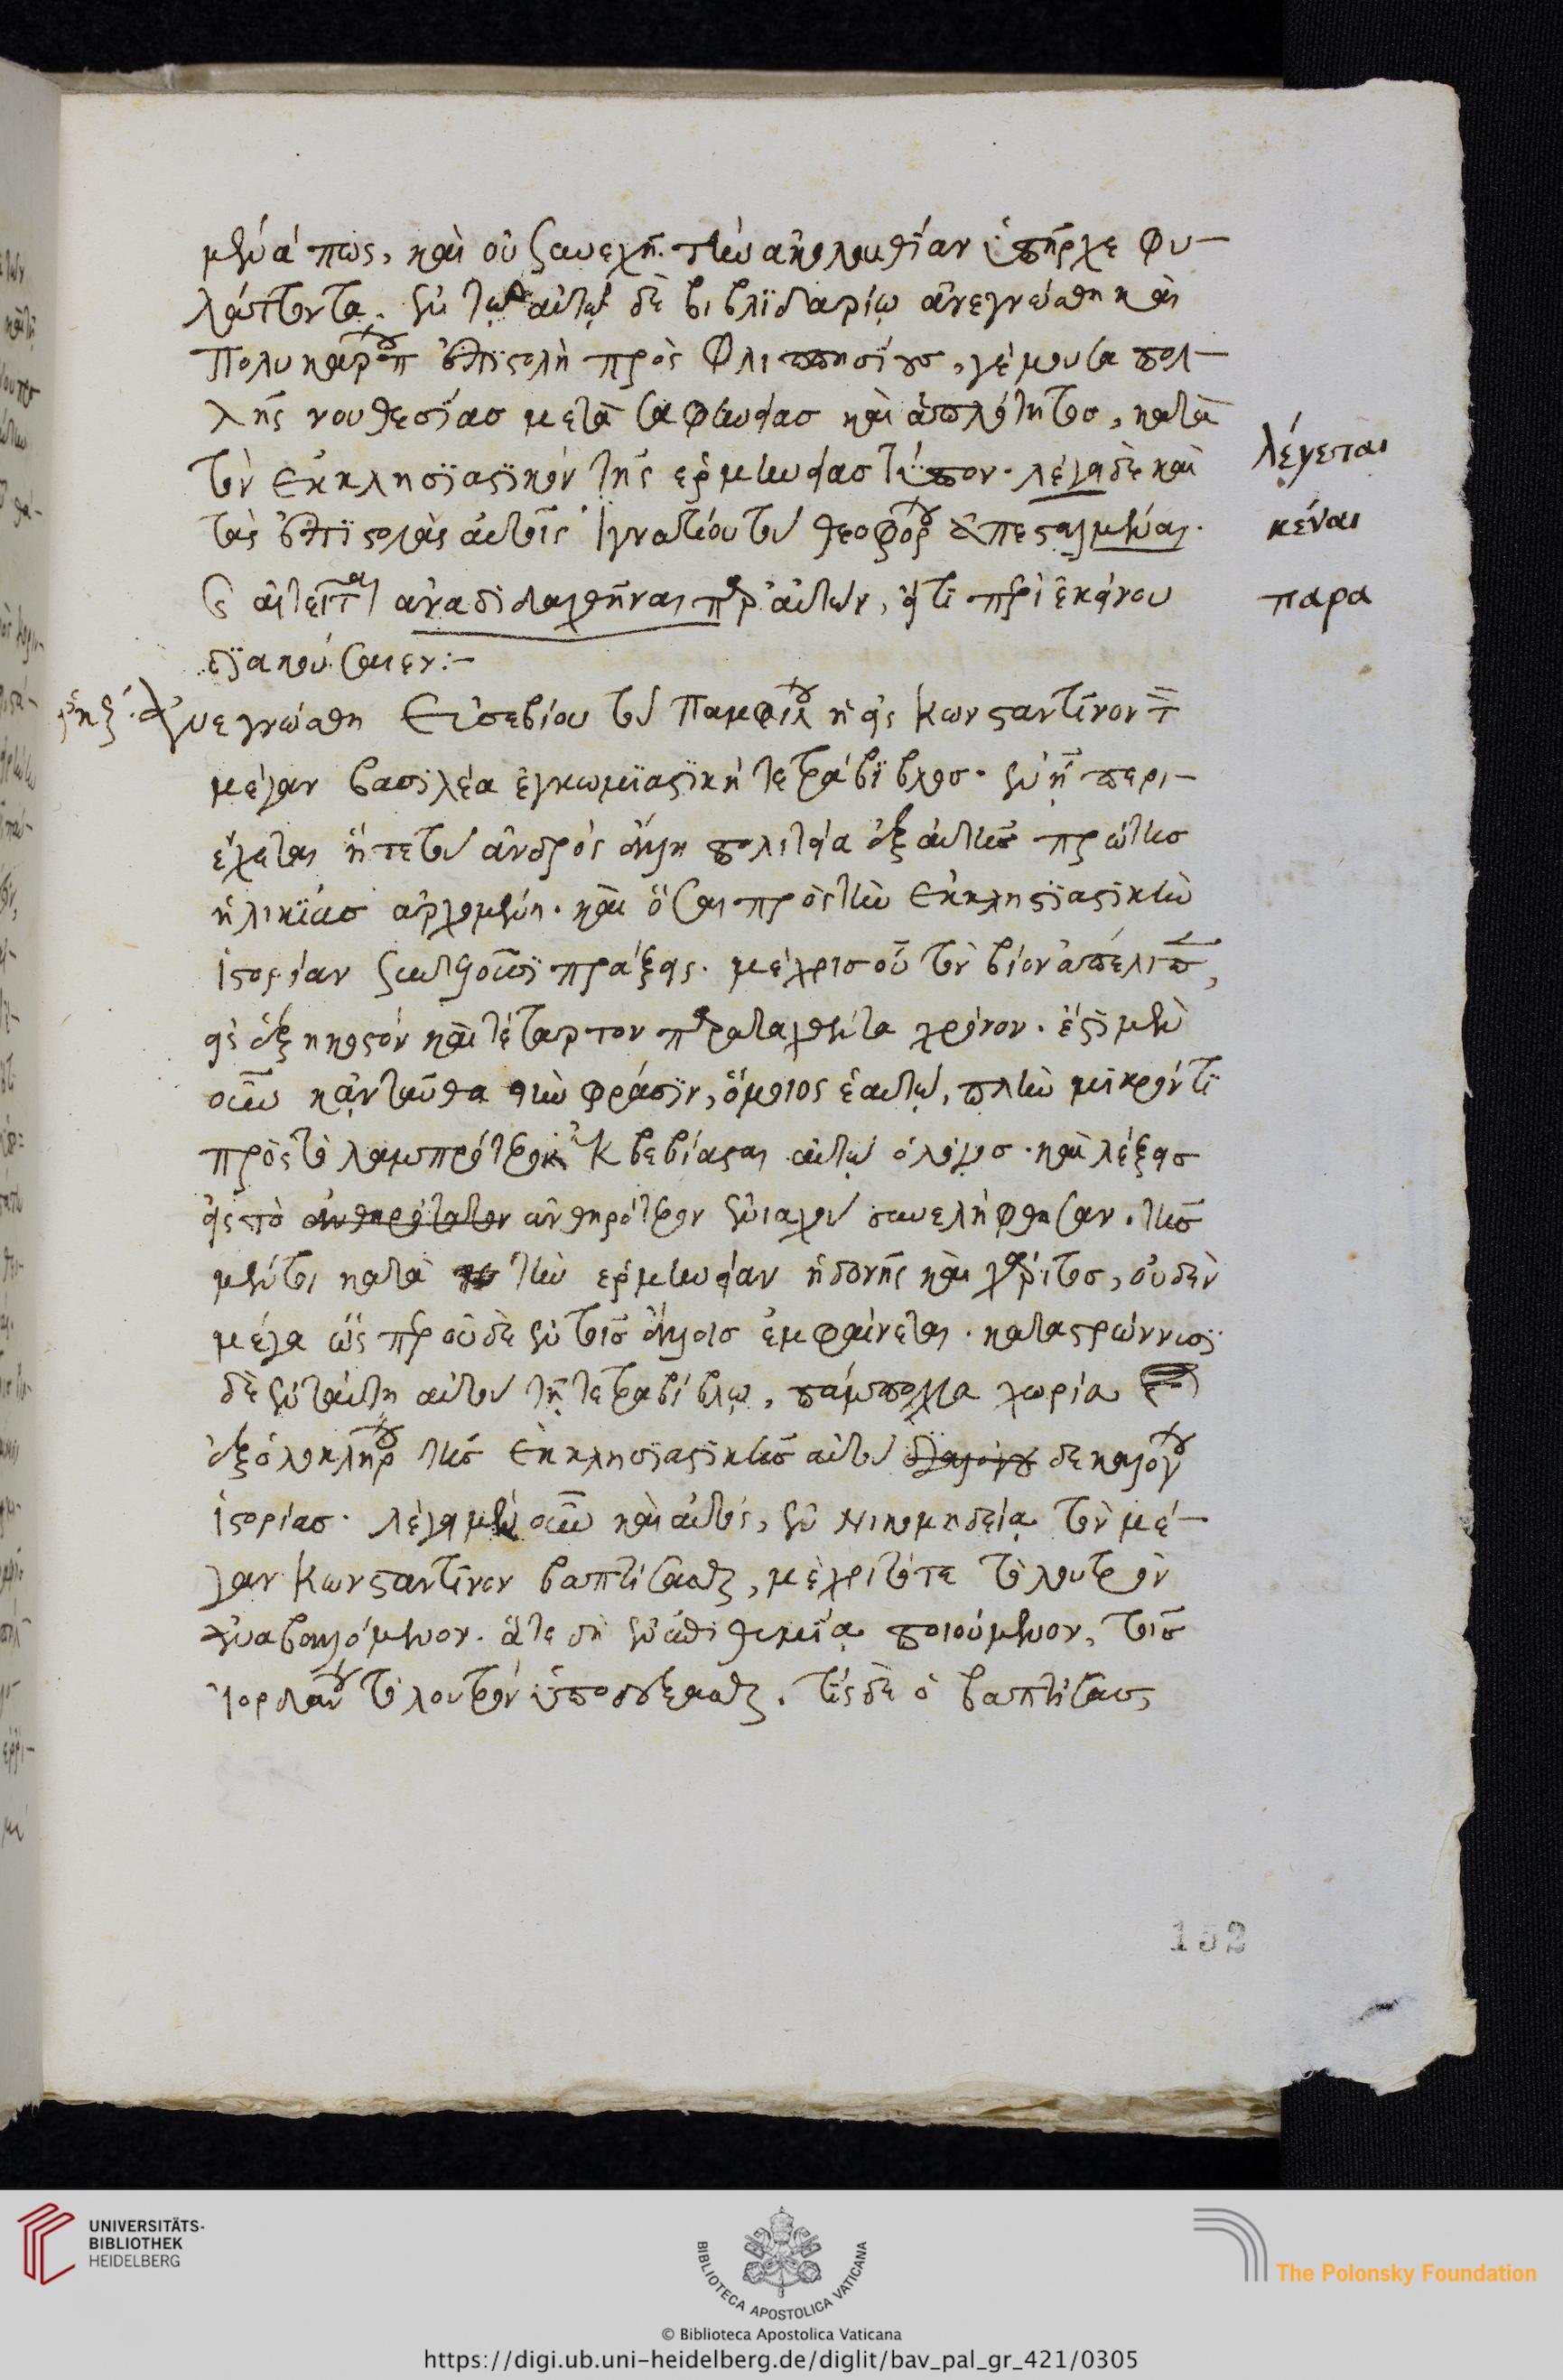 μένά πως, καὶ οὐ συνεχῆ τὴν ἀκολουθίαν ὑπῆρχε φυ-
λάττοντα. ἐν τῷ αὐτῷ δὲ βιβλιδαρίῳ ἀνεγνώσθη καὶ
Πολυκάρπου ἐπιστολὴ πρὸς Φλιππησίους, γέμουσα πολ-
λῆς νουθεσίας μετὰ σαφηνείας καὶ ἁπλότητος, κατὰ
τὸν ἐκκλησιαστικὸν τῆς ἑρμηνείας τύπον. λέγει δὲ καὶ
λέγεται
τὰς ἐπιστολὰς αὐτοῖς Ἰγνατίου τοῦ θεοφόρου ἀπεσταλμέναι.
κέναι
αἰτεῖται ἀναδιδαχθῆναι παρ' αὐτῶν, εἴ τι περὶ ἐκείνου
παρα
διακούσαιεν:-
ἀνεγνώσθη Εὐσεβίου τοῦ Παμφίλου ἡ εἰς Κωνσταντῖνον τὸν
μέγαν βασιλέα ἐγκωμιαστικὴ τετράβιβλος. ἐν ᾗ περι-
έχεται ἥ τε τοῦ ἀνδρὸς ὅλη πολιτεία ἐξ αὐτῆς πρώτης
ἡλικίας ἀρχομένη. καὶ ὅσαι πρὸς τὴν ἐκκλησιαστικὴν
ἱστορίαν συντελοῦσι πράξεις. μέχρις οὗ τὸν βίον ἀπέλιπεν,
εἰς ἑξηκοστὸν καὶ τέταρτον παραταχθέντα χρόνον. ἔστι μὲν
οὖν κἀνταῦθα τὴν φράσιν, ὅμοιος ἑαυτῷ, πλὴν μικρόν τι
πρὸς τὸ λαμπρότερον ἐκβεβίασται αὐτῷ ὁ λόγος. καὶ λέξεις
εἰς τὸ ἀνθηρότατον ἀνθηρότερον ἐνιαχοῦ συνελήφθησαν. τῆς
μέντοι κατὰ τὴν ἑρμηνείαν ἡδονῆς καὶ χάριτος, οὐδὲν
μέγα ὥσπερ οὐδὲ ἐν τοῖς ἄλλοις ἐμφαίνεται. καταστρώννυσι
δὲ ἐν ταύτῃ αὐτοῦ τῇ τετραβίβλῳ, πάμπολλα χωρία
ἐξ ὁλοκλήρου τῆς ἐκκλησιαστικῆς αὐτοῦ δεκαλόγου
ἱστορίας. λέγει μὲν οὖν καὶ αὐτὸς, ἐν Νικομηδείᾳ τὸν μέ-
γαν Κωνσταντῖνον βαπτίσασθαι, μέχρι τότε τὸ λουτρὸν
ἀναβαλλόμενον. ἅτε δὴ ἐν ἐπιθυμίᾳ ποιούμενον, τοῖς
Ἰορδάνου τὸ λουτρὸν ὑποδέξασθαι. τίς δὲ ὁ βαπτίσας
152
UNIVERSITÄTS-
BIBLIOTHEK
HEIDELBERG
BIBLIOTECA APOSTOLICA VATICANA
The Polonsky Foundation
© Biblioteca Apostolica Vaticana
https://digi.ub.uni-heidelberg.de/diglit/bav_pal_gr_421/0305